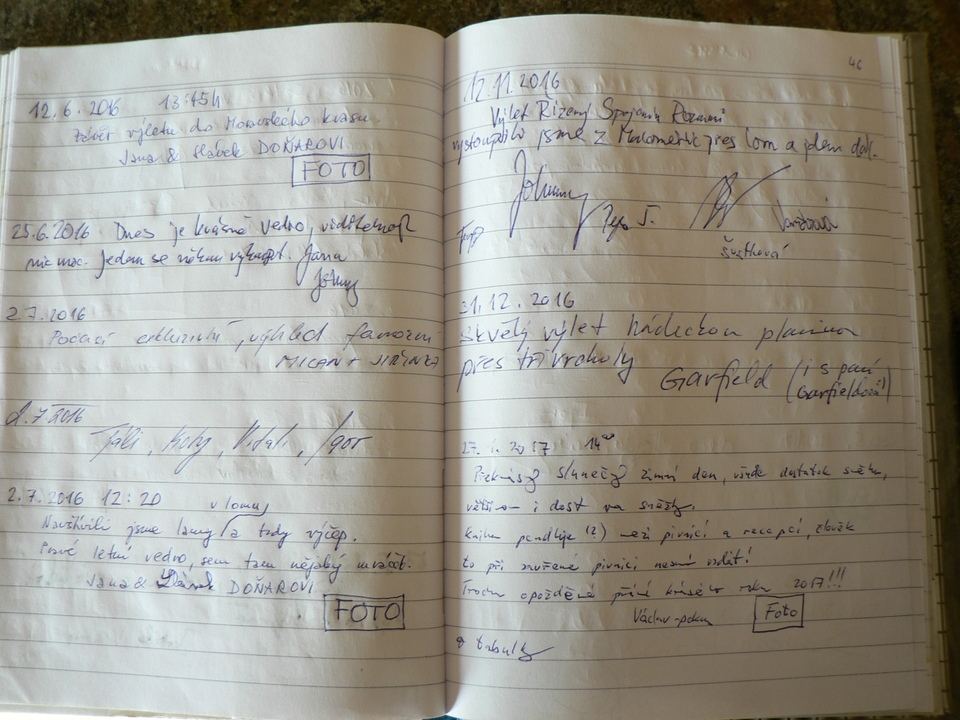 12.6.2016 13:45h
Závěr výletu do Moravského krasu.
Jana & Slávek DOŇAROVI
FOTO
25.6.2016 Dnes je krásně vedro, viditelnost
nic moc. Jedem se někam vykoupat. Jana
Johny
2.7.2016
Počasí exkluzivní, výhled famózní
MILAN + JIŘINKA
2.7.2016
Igor
2.7.2016 12:20
v lomu
Navštívili jsme a tady výčep.
Pravé letní vedro, sem tam nějaký mráček.
Jana & DOŇAROVI
FOTO
46
12.11.2016
Výlet Řízený Spojením
vystoupili jsme z přes lom a jdem dál.
Johnny
Pepa J.
Šustková
31.12.2016
Skvělý výlet Hádeckou planinou
přes tři vrcholy
Garfield (i s paní
Garfieldovou)
27. 1. 2017 14⁰⁰
Překrásný slunečný zimní den, všude dostatek sněhu,
většinou i dost na
Kniha (?) mezi pivnicí a recepcí, člověk
to při zavřené pivnici nesmí vzdát!
Trochu opožděné přání krásného roku 2017!!!
Václav
Foto